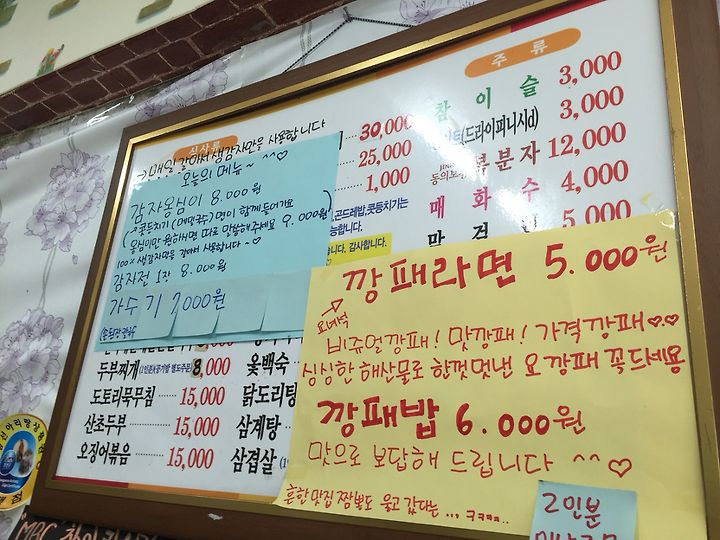 식사류
→ 매일 갈아서 생감자만을 사용합니다
오늘의 메뉴~ ^^♡
감자옹심이 8.000원
(↗콧등치기 (메밀국수) 면이 함께 들어가요
옹심이만 원하시면 따로 말씀해주세요 9.000원)
100% 생감자만을 갈아서 사용합니다~♡
감자전 1장 8.000원
가수기 7000원
30,000
25,000
1,000
곤드레밥,콧등치기는
능합니다.
습니다. 감사합니다.
두부찌개 8,000
도토리묵무침 15,000
산초두부 15,000
오징어볶음 15,000
옻백숙
닭도리탕
삼계탕
삼겹살
주류
참이슬 3,000
(드라이피니시d) 3,000
복분자 12,000
매화수 4,000
막걸리 5,000
깡패라면 5.000원
요녀석
비쥬얼깡패! 맛깡패! 가격깡패♡♡
싱싱한 해산물로 한껏멋낸 요 깡패 꼭드세용
깡패밥 6.000원
맛으로 보답해 드립니다 ^^ ♡
흔한맛집 짬뽕도 울고 갔다는... ㅋㅋㅋ..
2인분
MBC